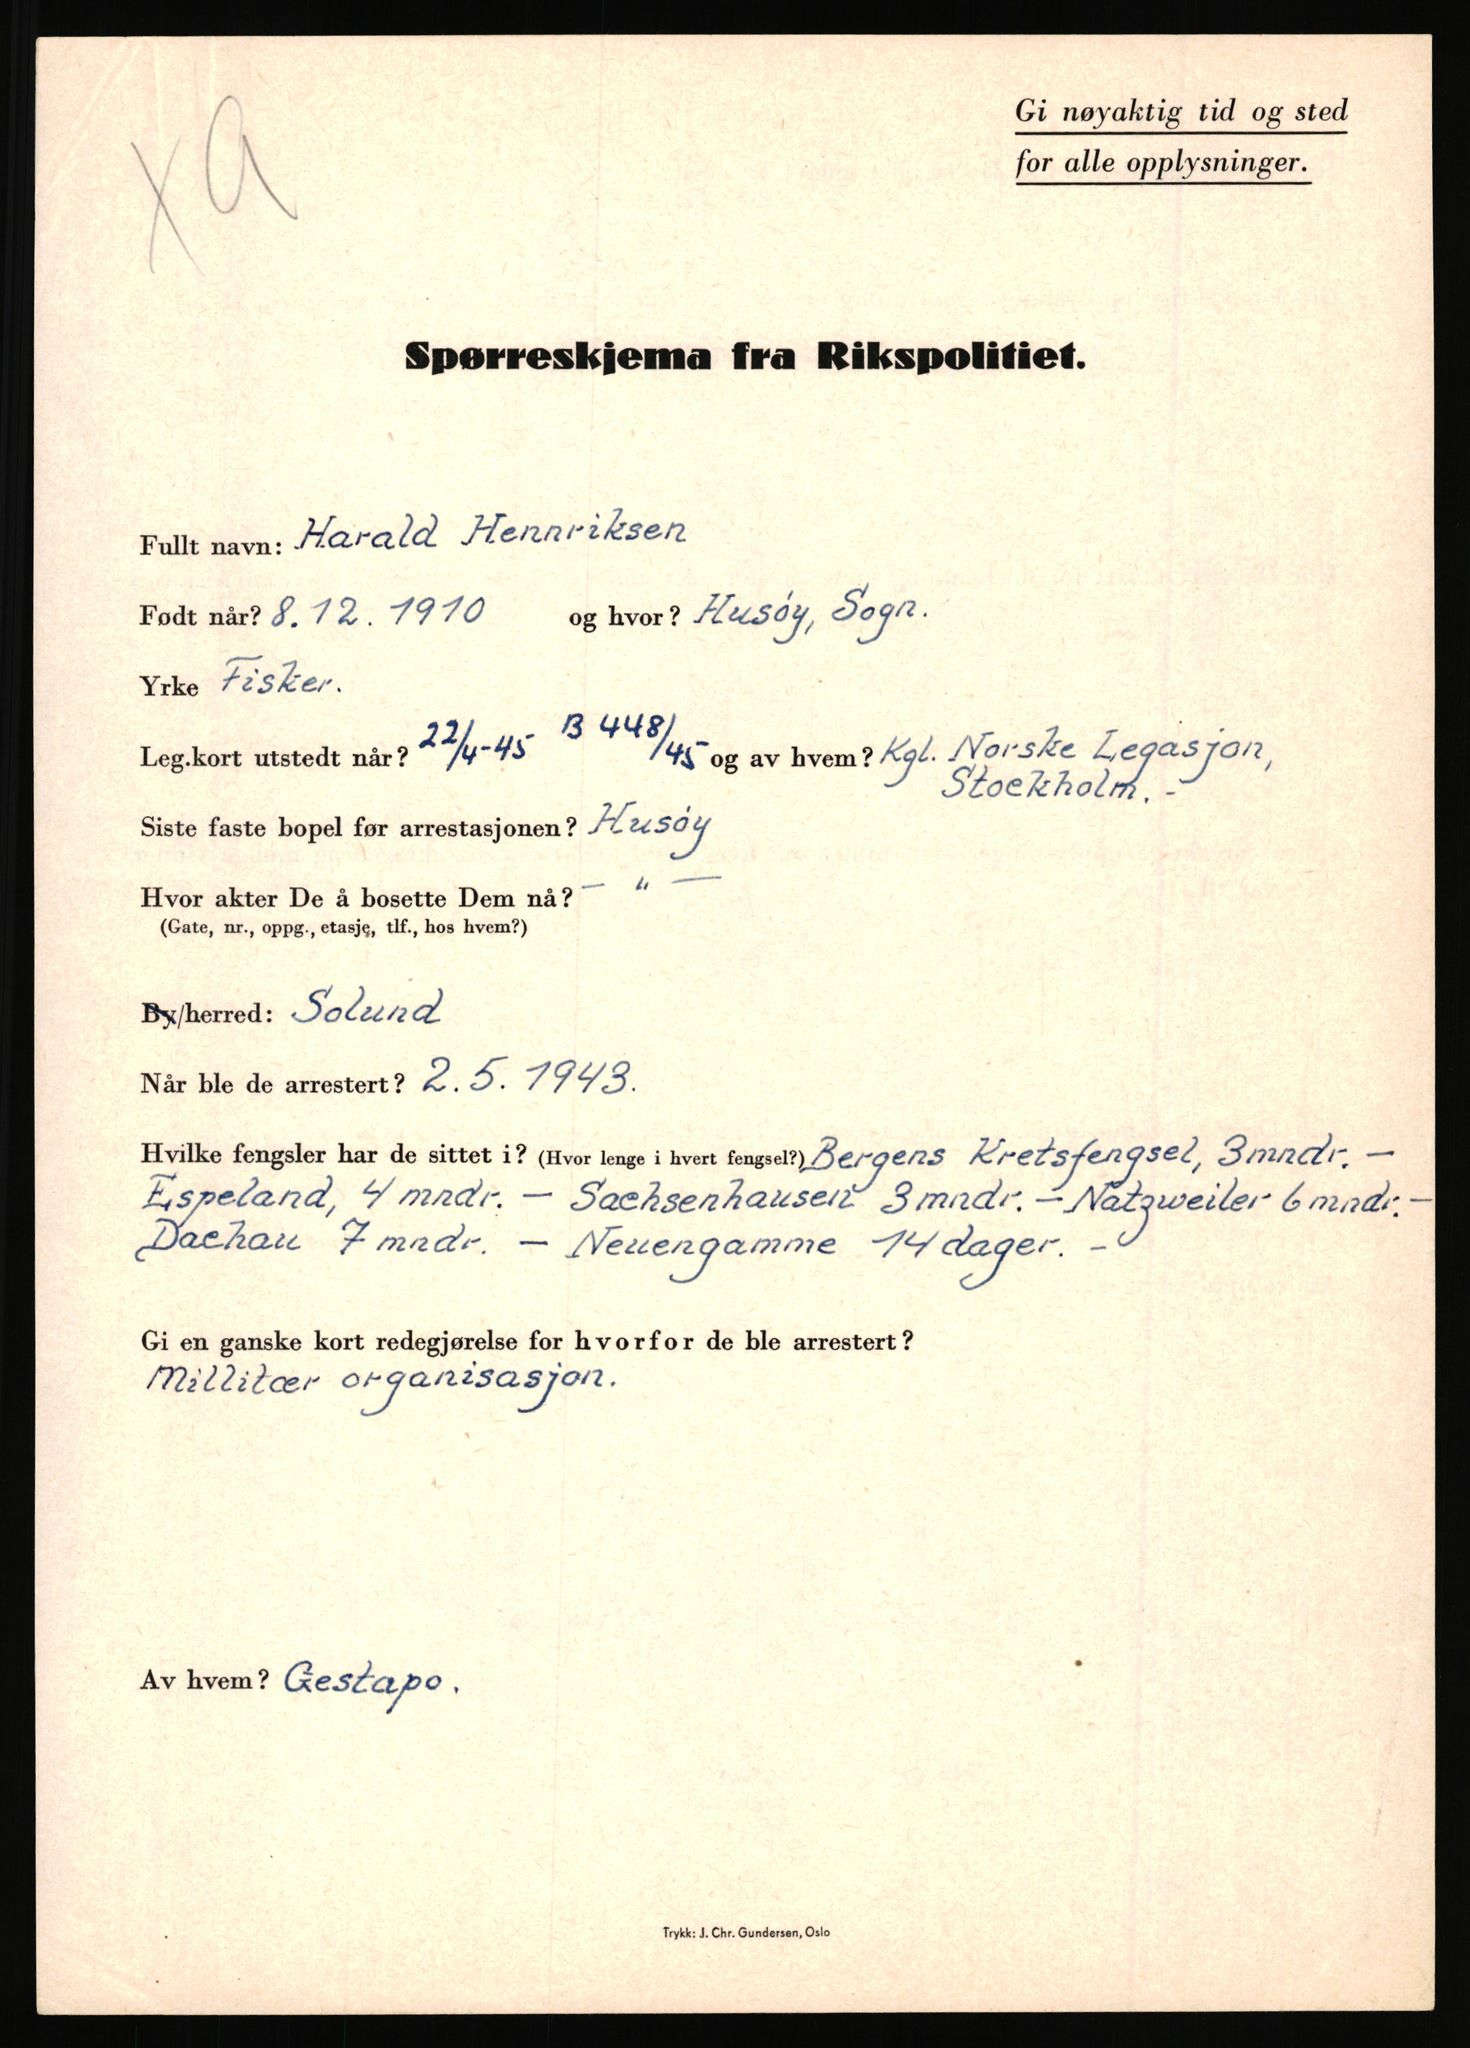 xa
Gi nøyaktig tid og sted
for alle opplysninger.
Spørreskjema fra Rikspolitiet.
Fullt navn: Harald Hennriksen
Født når? 8.12.1910 og hvor? Husøy, Sogn.
Yrke Fisker.
Leg.kort utstedt når? 22/4-45 B 448/45 og av hvem? Kgl. Norske Legasjon,
Stockholm. -
Siste faste bopel før arrestasjonen? Husøy
Hvor akter De å bosette Dem nå? — " —
(Gate, nr., oppg., etasje, tlf., hos hvem?)
By/herred: Solund
Når ble de arrestert? 2.5.1943.
Hvilke fengsler har de sittet i? (Hvor lenge i hvert fengsel?) Bergens Kretsfengsel, 3 mndr. —
Espeland, 4 mndr. — Sachsenhausen 3 mndr. — Natzweiler 6 mndr. —
Dachau 7 mndr. — Neuengamme 14 dager. -
Gi en ganske kort redegjørelse for hvorfor de ble arrestert?
Millitær organisasjon.
Av hvem? Gestapo.
Trykk: J. Chr. Gundersen, Oslo